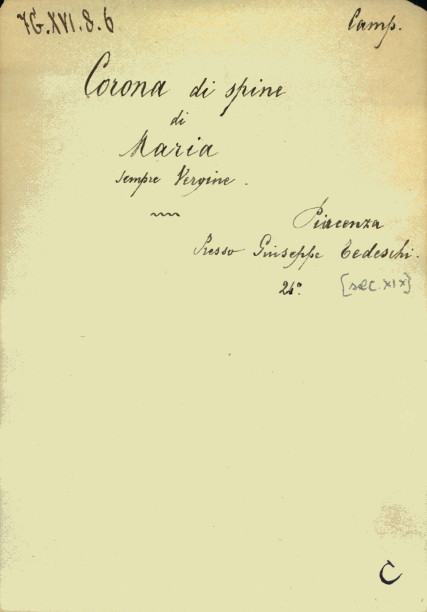 7G.XVI.8.6
Camp.
Corona di spine
di
Maria
sempre Vergine.
Piacenza
Presso Giuseppe Tedeschi.
26°
[sec. XIX]
C